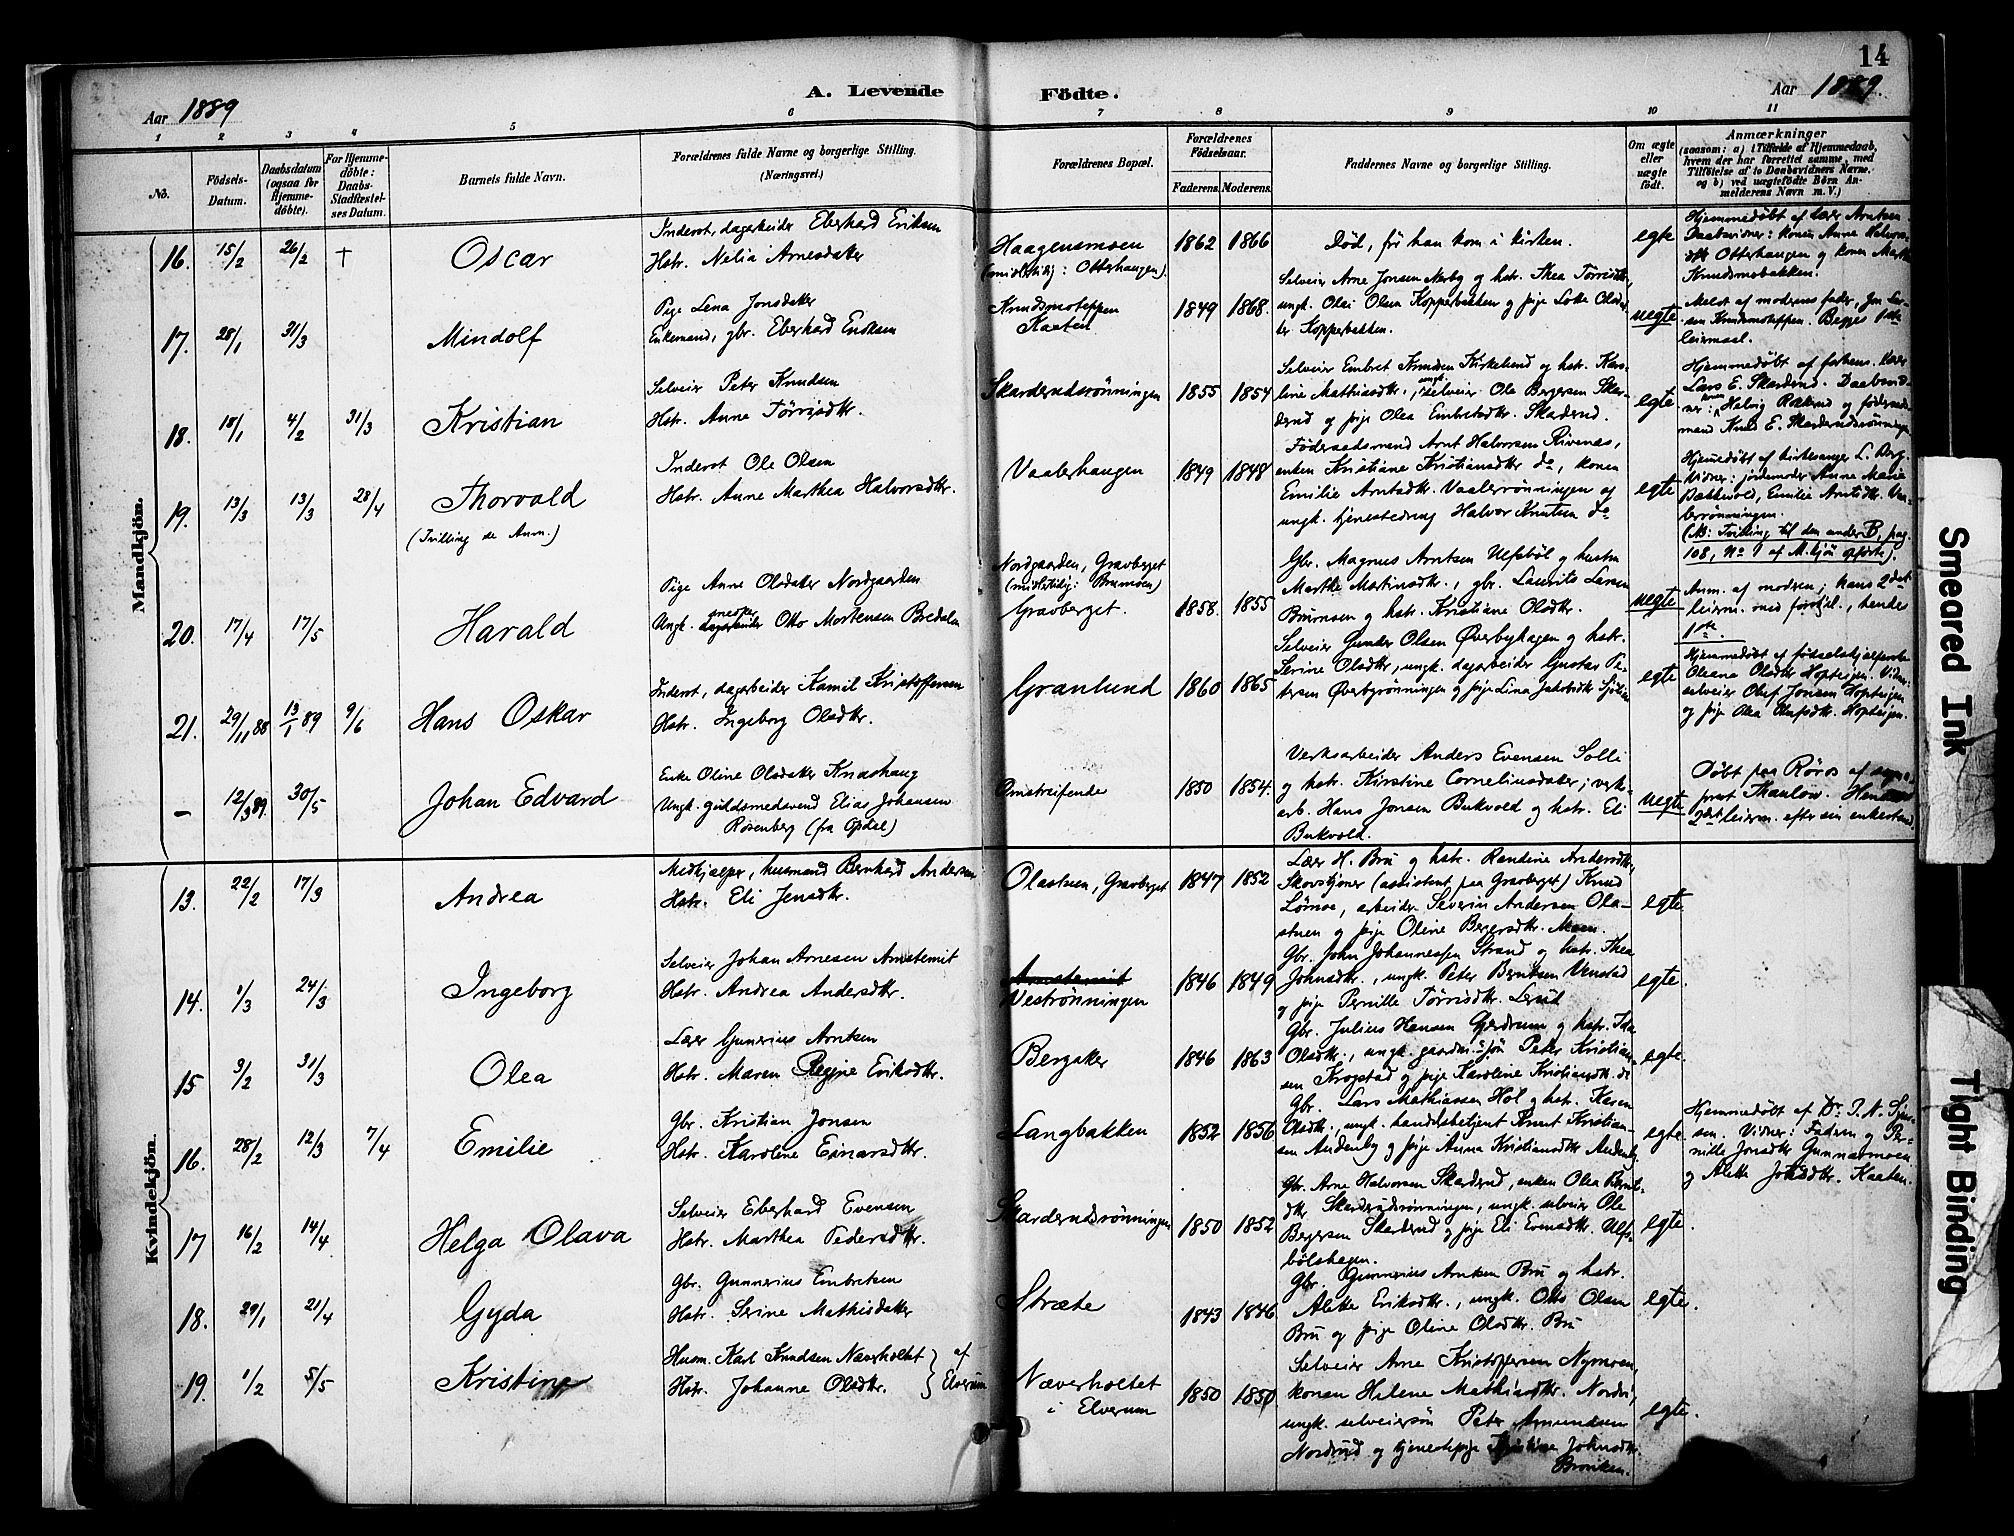 14
A. Levende Födte.
Aar 1889
Aar 1889.
1 2 3 4 5 6 7 8 9 10 11
No.
Födsels-Datum.
Daabsdatum (ogsaa for Hjemme-döbte).
For Hjemme-döbte: Daabs-Stadfæstel-ses Datum.
Barnets fulde Navn.
Forældrenes fulde Navne og borgerlige Stilling. (Næringsvei.)
Forældrenes Bopæl.
Forældrenes Födselsaar. Faderens. Moderens.
Faddernes Navne og borgerlige Stilling.
Om ægte eller uægte födt.
Anmærkninger (saasom: a) i Tilfælde af Hjemmedaab, hvem der har forrettet samme, med Tilföielse af to Daabsvidners Navne. og b) ved uægtefödte Börn An-melderens Navn m. V.)
Mandkjön.
16. 15/2 26/2 † Oscar
Inderst, dagarbeider Eberhard Eriksen
Hstr. Nelia Arnesdatter
Haagensmoen
(midlstilig: Otterhaugen)
1862 1866
Död, för han kom i kirken.
egte
Hjemmedøbt af Lærer Arntsen.
Daabsvidner: konen Anne Halvors-
dtr Otterhaugen og konen Marthe
Knudsmobakken.
17. 28/1 31/3 Mindolf
Pige Lena Jonsdatter
Enkemand, gbr. Eberhard Eriksen
Knudsmoteppen
Kaaten
1849 1868.
Selveier Arne Jonsen Nerby og hstr. Thea Törrisdtr.,
ungk. Olai Olsen Kopperbakken og pige Lotte Olsdat-
ter Kopperbakken.
uegte
Meldt af moderens fader, Jon Lar-
sen Knudsmoteppen. Begges 1ste
leiermaal.
18. 18/1 4/2 31/3 Kristian
Selveier Peter Knudsen
Hstr. Anne Törrisdtr.
Skarderudsrönningen
1855 1854
Selveier Embret Knudsen Kirkelund og hstr. Karo-
line Mathiasdtr., ungk. selveier Ole Bergersen Skar-
derud og pige Olea Embretsdtr. Skarderud.
egte
Hjemmedøbt af forhens. Lærer
Lars E. Skarderud. Daabsvid-
ner: konen Helvig Rokkerud og föderaads-
mand Knud E. Skarderudsrönningen
19. 13/3 13/3 28/4 Thorvald
(Tvilling se Anm.)
Inderst Ole Olsen
Hstr. Anne Marthea Halvorsdtr.
Vaalerhaugen
1849 1848
Föderaadsmand Arnt Halvorsen Rivenæs,
enken Kristiane Kristiansdtr do, konen
Emilie Arntsdtr. Vaalerrönningen og
ungk. tjenestedreng Halvor Knutsen do
egte
Hjemmedøbt af kirkesanger L. Berg.
Vidner: jordemoder Anne Marie
Bakkevold, Emilie Arntsdtr. Vaa-
lerrönningen.
(NB: Tvilling til den under B, pag.
108, No 1 af M.kjön opförte)
20. 17/4 17/5 Harald
Pige Anne Olsdatter Nordgaarden
Ungk. snedker Otto Mortensen Bredalen
Nordgaarden, Gravberget
(midlstilig: Brumoen)
Gravberget.
1858. 1855
Gbr. Magnus Arntsen Ulfsböl og hustru
Marthe Martinsdtr., gbr. Laurits Larsen
Brumoen og hstr. Kristiane Olsdtr.
uegte
Anm. af modren; hans 2det
leierm. med forskjel., hendes
1ste.
21. 29/11 88 13/1 89 9/6 Hans Oskar
Inderst, dagarbeider Kamil Kristoffersen
Hstr. Ingeborg Olsdtr.
Granlund
1860 1865
Selveier Gunder Olsen Øverbyhagen og hstr.
Serine Olsdtr., ungk. dagarbeider Gustav Pe-
tersen Øverbyrönningen og pige Lina Jakobsdtr
egte
Hjemmedøbt af födselshjælperske
Oleana Olsdtr Hopteigen. Vidner:
selveier Olof Jonsen Hopteigen
og pige Olea Olufsdtr. Hopteigen.
– 12/3 89. 30/5 Johan Edvard
Enke Oline Olsdatter Knashaug
Ungk. guldsmedsvend Elias Johansen
Rosenberg (fra Opdal)
Omstreifende
1850 1854.
Verksarbeider Anders Evensen Solli
og hstr. Kirstine Corneliusdatter; verk-
arb. Hans Jonsen Bukvold og hstr. Eli
Bukvold.
uegte
Döbt paa Röros af sogne-
prest Thaulow.
2det leierm. efter sin enkestand
Kvindekjön.
13. 22/2 17/3 Andrea
Medhjælper, husmand Bernhard Andersen
Hstr. Eli Jensdtr.
Olastuen, Gravberget
1847 1852
Lærer H. Bru og hstr. Randine Andersdtr.,
Skovtjener (assistent paa Gravberget) Knud
Lömoe, arbeider Severin Andersen Ola-
stuen og pige Oline Bergersdtr. Moen.
egte.
14. 1/3 24/3 Ingeborg
Selveier Johan Arnesen Arnstemit
Hstr. Andrea Andersdtr.
Arnstemit
Veströnningen
1846 1849
Gbr. John Johannessen Strand og hstr. Thea
Johnsdtr., ungk. Peter Berntsen Venstad
og pige Pernille Törrisdtr. Lerud
egte.
15 3/2 31/3 Olea
Lærer Gunerius Arntsen
Hstr. Maren Regine Eriksdtr.
Bergaker
1846 1863
Gbr. Julius Hansen Gjerdrum og hstr. Ida
Olsdtr., ungk. gaardm.sön Peter Kristian-
sen Krogstad og pige Karoline Kristiansdtr. do
egte.
16. 28/2 12/3 7/4 Emilie
Gbr. Kristian Jonsen
Hstr. Karoline Einarsdtr.
Langbakken
1852 1856
Gbr. Lars Mathiassen Hol og hstr. Karen
Olsdtr., ungk. handelsbetjent Knut Kristian-
sen Audenby og pige Anna Kristiansdtr Audenby
egte
Hjemmedöbt af Dr. I. N.
Vidner: Fadren og Per-
nille Jonsdtr Gunnarsmoen
og Alette Johnsdtr. Kaaten.
17 16/2 14/4 Helga Olava
Selveier Eberhard Evensen
Hstr. Marthea Pedersdtr.
Skarderudsrönningen
1850 1852
Gbr. Arne Halvorsen Skarderud, enken Olea Bernt-
dtr Skarderudsrönningen, ungk. selveier Ole
Bergersen Skarderud og pige Eli Evensdtr. Ulfs-
bölshagen.
egte.
18. 29/1 21/4 Gyda
Gbr. Gunnerius Embretsen
Hstr. Serine Mathisdatter
Stræte
1843 1846
Gbr. Gunnerius Arntsen Bru og hstr.
Alette Eriksdtr., ungk. Otto Olsen
Bru og pige Oline Olsdtr. Bru
egte.
19. 1/2 5/5 Kristine
Husm. Karl Knudsen Næverholtet
Hstr. Johanne Olsdtr.
} af Elverum
Næverholtet
i Elverum
1850 1850
Selveier Arne Kristoffersen Nymoen,
konen Helene Mathiasdtr. Nordre,
ungk. selveiersön Peter Amundsen
Nordrud og tjenestepige Kristine Johnsdtr.
Broviken.
egte.
Smeared Ink
Tight Binding